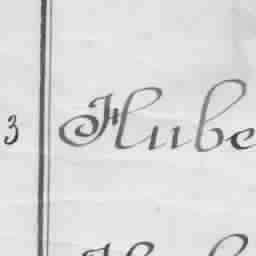 3 Hube